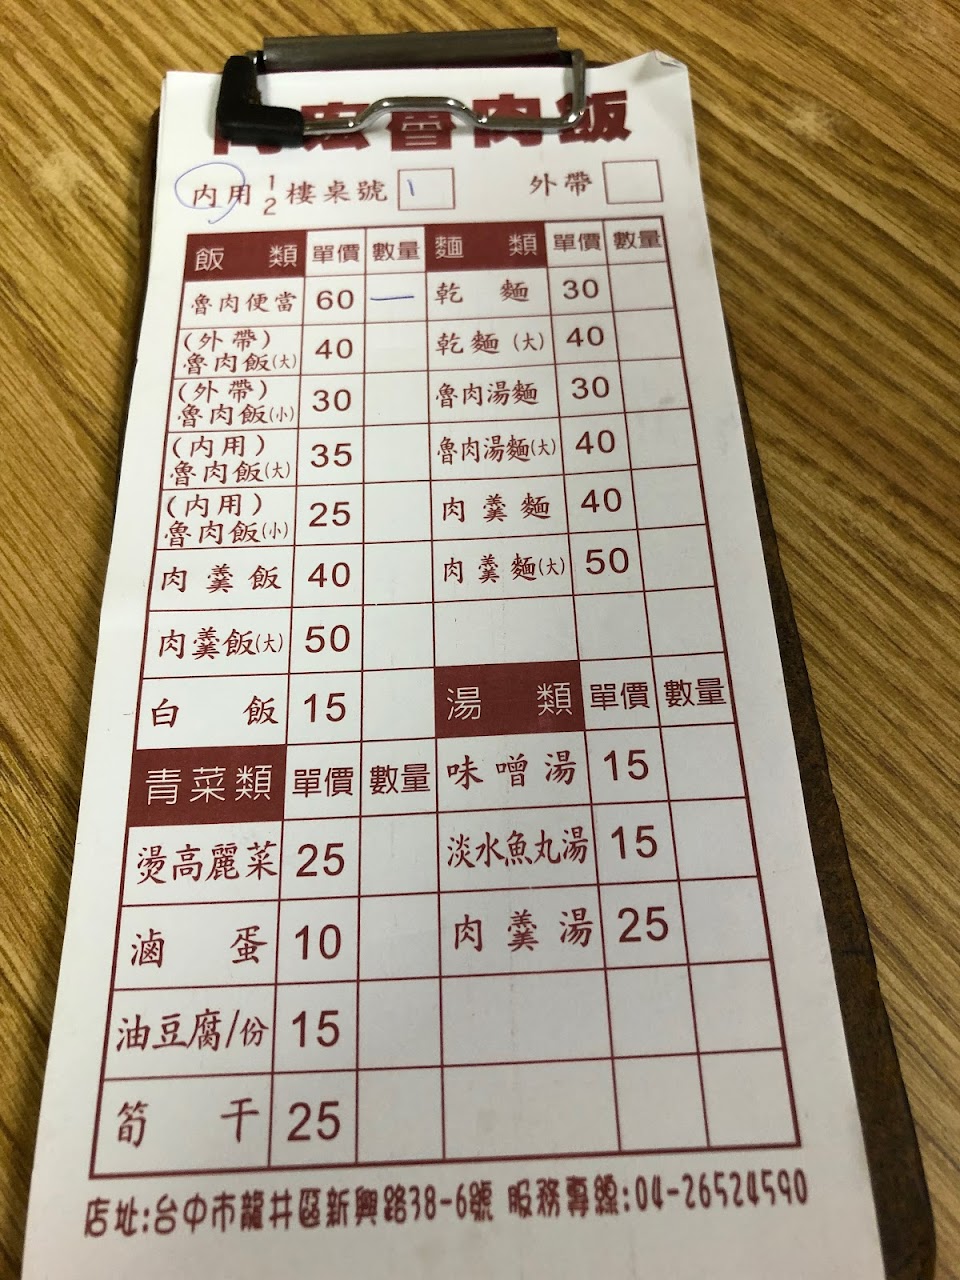 魯肉飯
內用 1/2 樓桌號 1 外帶
飯類 單價 數量 麵類 單價 數量
魯肉便當 60 一 乾麵 30
(外帶)魯肉飯(大) 40 乾麵(大) 40
(外帶)魯肉飯(小) 30 魯肉湯麵 30
(內用)魯肉飯(大) 35 魯肉湯麵(大) 40
(內用)魯肉飯(小) 25 肉羹麵 40
肉羹飯 40 肉羹麵(大) 50
肉羹飯(大) 50
白飯 15 湯類 單價 數量
青菜類 單價 數量 味噌湯 15
燙高麗菜 25 淡水魚丸湯 15
滷蛋 10 肉羹湯 25
油豆腐/份 15
筍干 25
店址:台中市龍井區新興路38-6號 服務專線:04-26524590